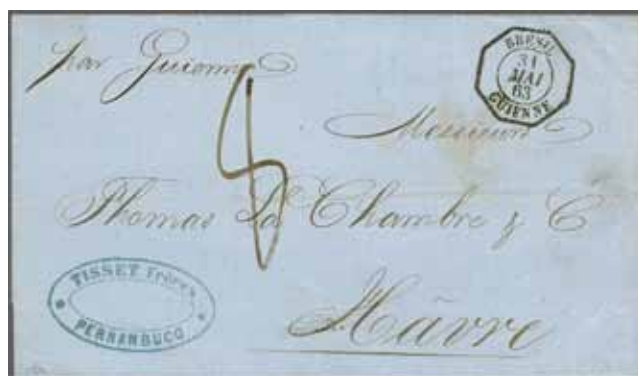 par Guienne
BRESIL
31
MAI
63
GUIENNE
8
Messieurs
Thomas La Chambre & Cᵉ
TISSET Frères
PERNANBUCO
Hâvre